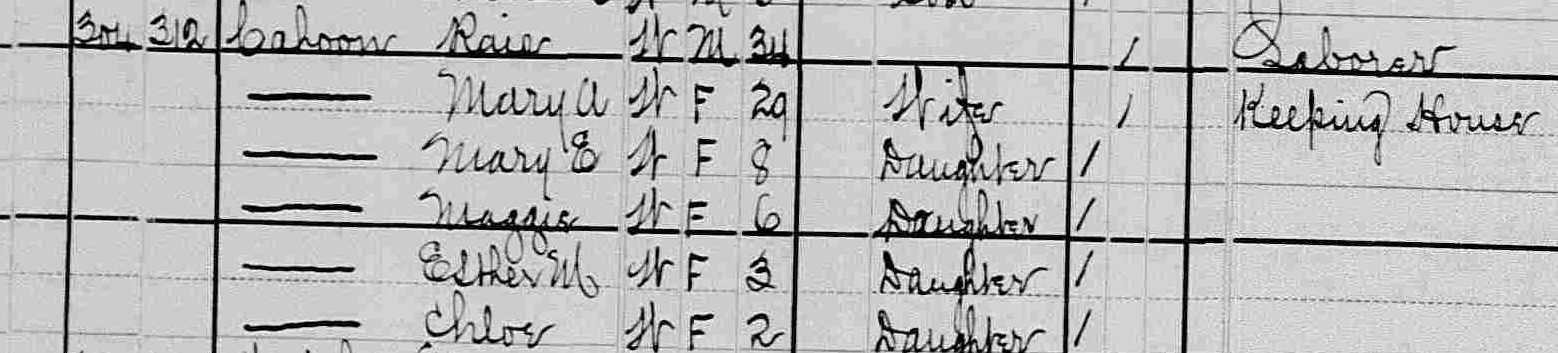 304 312 Cahoon W M 34 / Laborer
Mary A W F 29 Wife / Keeping House
Mary E W F 8 Daughter /
Maggie W F 6 Daughter /
Esther M W F 3 Daughter /
Chloe W F 2 Daughter /